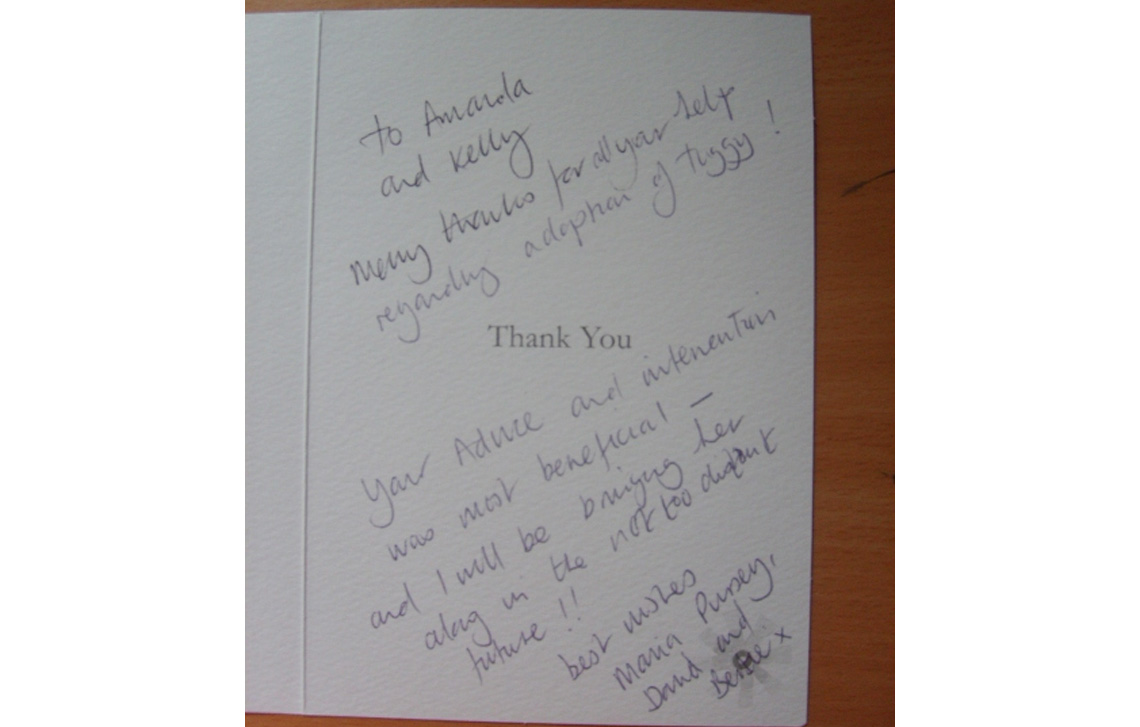 to Amanda
and Kelly
Many thanks for all your help
regarding adoption of Tiggy!
Thank You
Your Advice and intervention
was most beneficial –
and I will be bringing her
along in the not too distant
future !!
best wishes
Maria Pursey,
David and
x